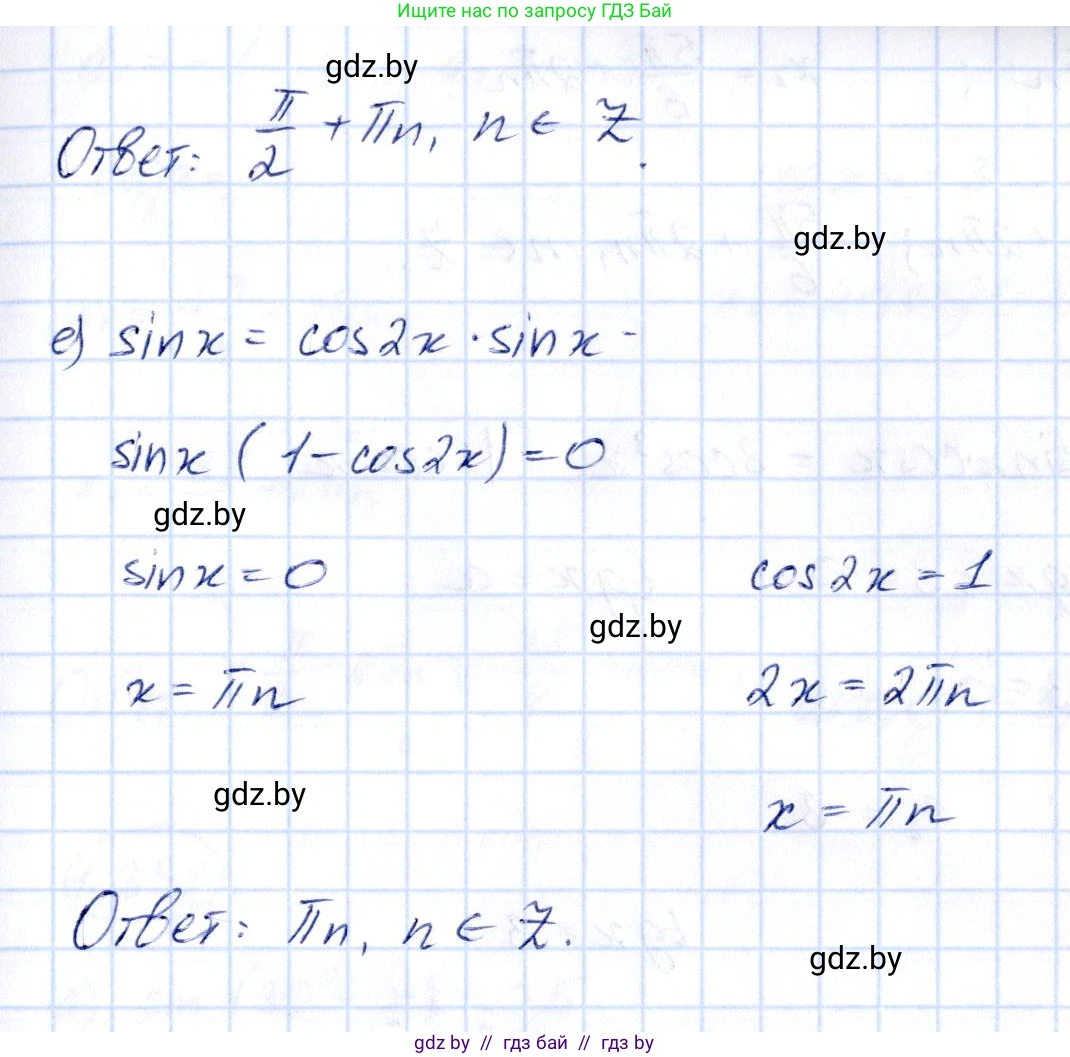 Ищите нас по запросу ГДЗ Бай
gdz.by
Ответ: π/2 + πn, n ∈ Z.
gdz.by
е) sinx = cos2x · sinx -
sinx (1 - cos2x) = 0
gdz.by
sinx = 0 cos2x = 1
gdz.by
x = πn 2x = 2πn
gdz.by
x = πn
Ответ: πn, n ∈ Z.
gdz.by
gdz by // гдз бай // gdz by